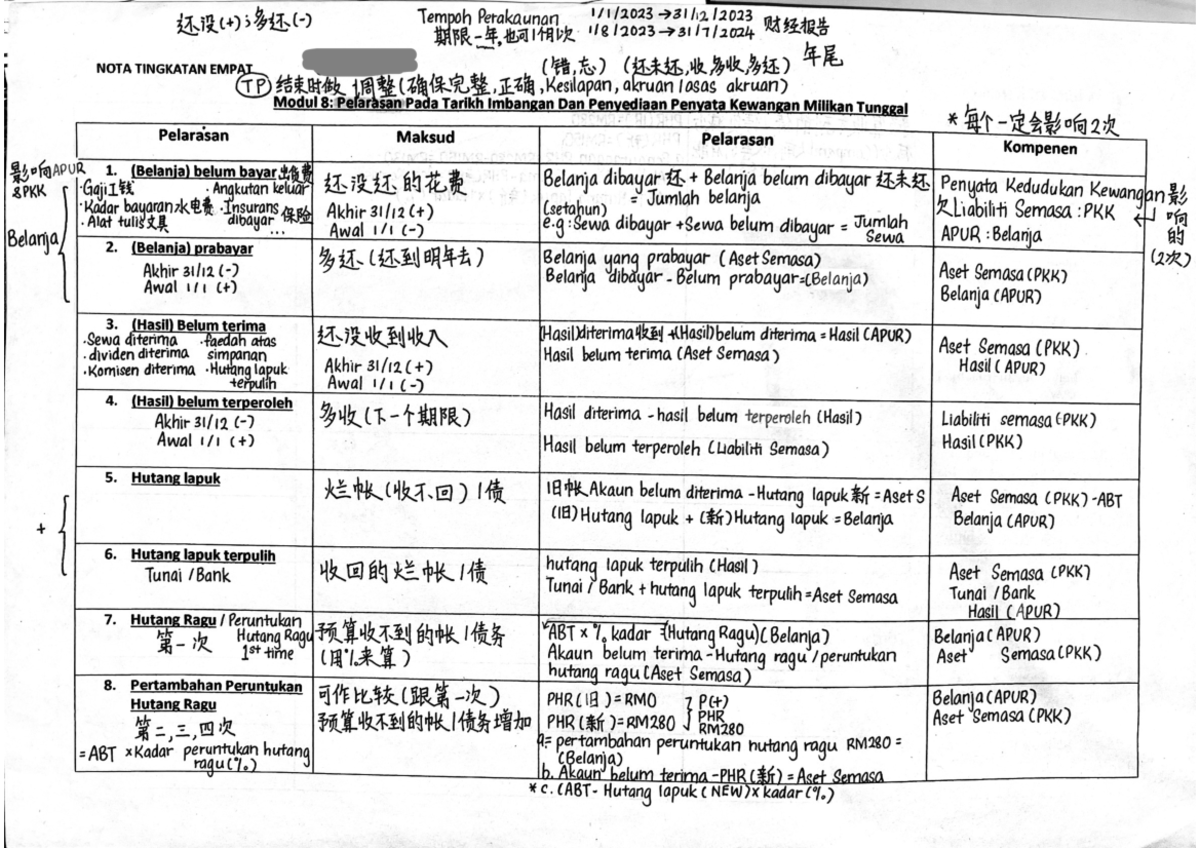 还没(+);多还(-)
Tempoh Perakaunan 1/1/2023 →31/12/2023
期限一年,也可1个月1次 1/8/2023 →31/7/2024 财经报告
年尾
(错,忘) (还未还,收,多收,多还)
NOTA TINGKATAN EMPAT
(TP) 结束时做 调整(确保完整,正确,Kesilapan, akruan /asas akruan)
Modul 8: Pelarasan Pada Tarikh Imbangan Dan Penyediaan Penyata Kewangan Milikan Tunggal
*每个一定会影响2次
Pelarasan
Maksud
Pelarasan
Kompenen
影响APUR
&PKK
Belanja
1. (Belanja) belum bayar 出货费
·Gaji 工钱 ·Angkutan keluar
·Kadar bayaran 水电费 ·Insurans 保险
·Alat tulis 文具 dibayar ...
还没还的花费
Akhir 31/12 (+)
Awal 1/1 (-)
Belanja dibayar 还 + Belanja belum dibayar 还未还
(setahun) = Jumlah belanja
e.g : Sewa dibayar +Sewa belum dibayar = Jumlah Sewa
Penyata Kedudukan Kewangan
欠Liabiliti Semasa : PKK
APUR : Belanja
影响的
(2次)
2. (Belanja) prabayar
Akhir 31/12 (-)
Awal 1/1 (+)
多还(还到明年去)
Belanja yang prabayar (Aset Semasa)
Belanja dibayar - Belum prabayar=(Belanja)
Aset Semasa (PKK)
Belanja (APUR)
3. (Hasil) Belum terima
·Sewa diterima ·faedah atas
·dividen diterima simpanan
·Komisen diterima ·Hutang lapuk
terpulih
还没收到收入
Akhir 31/12 (+)
Awal 1/1 (-)
(Hasil)diterima收到 +(Hasil)belum diterima = Hasil (APUR)
Hasil belum terima (Aset Semasa)
Aset Semasa (PKK)
Hasil (APUR)
4. (Hasil) belum terperoleh
Akhir 31/12 (-)
Awal 1/1 (+)
多收(下一个期限)
Hasil diterima -hasil belum terperoleh (Hasil)
Hasil belum terperoleh (Liabiliti Semasa)
Liabiliti semasa (PKK)
Hasil (PKK)
+
5. Hutang lapuk
烂帐(收不回)/债
旧帐 Akaun belum diterima -Hutang lapuk 新 =Aset S
(旧)Hutang lapuk + (新)Hutang lapuk =Belanja
Aset Semasa (PKK) -ABT
Belanja (APUR)
6. Hutang lapuk terpulih
Tunai /Bank
收回的烂帐/债
hutang lapuk terpulih (Hasil)
Tunai / Bank + hutang lapuk terpulih =Aset Semasa
Aset Semasa (PKK)
Tunai /Bank
Hasil (APUR)
7. Hutang Ragu / Peruntukan
第一次 Hutang Ragu
1st time
预算收不到的帐/债务
(用%来算)
ABT x % kadar =(Hutang Ragu)(Belanja)
Akaun belum terima -Hutang ragu /peruntukan
hutang ragu (Aset Semasa)
Belanja (APUR)
Aset Semasa (PKK)
8. Pertambahan Peruntukan
Hutang Ragu
第二,三,四次
=ABT ×Kadar peruntukan hutang
ragu(%)
可作比较(跟第一次)
预算收不到的帐/债务增加
PHR (旧) =RM0 P(+)
PHR (新) =RM280 PHR
RM280
a= pertambahan peruntukan hutang ragu RM280 =
(Belanja)
b. Akaun belum terima -PHR (新) = Aset Semasa
*c. (ABT- Hutang lapuk (NEW)x kadar (%)
Belanja (APUR)
Aset Semasa (PKK)